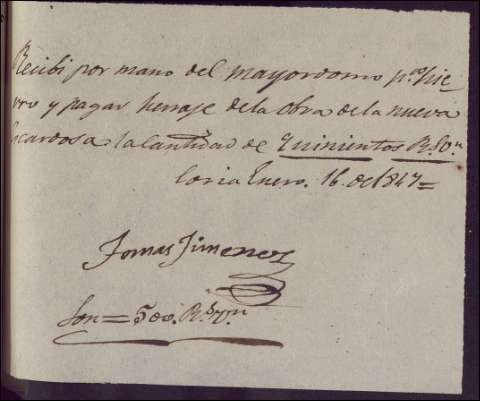 Recibi por mano del mayordomo p.ª hie
rro y pagar herraje de la obra de la nueva
la cantidad de Quinientos R.s v.n
Coria Enero. 16. de 1847=
Tomas Jimenez
Son = 500. R.s v.n